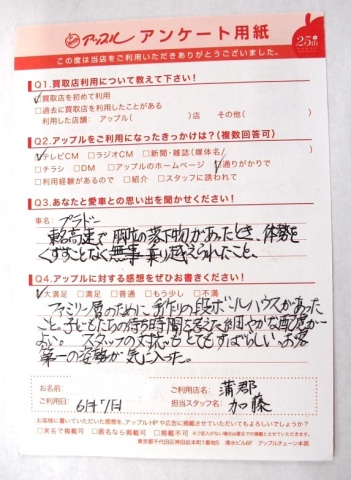 アップル アンケート用紙
25th
この度は当店をご利用いただきありがとうございました。
Q1.買取店利用について教えて下さい!
☑買取店を初めて利用
□過去に買取店を利用したことがある
利用した店舗: アップル( )店 その他( )
Q2.アップルをご利用になったきっかけは?(複数回答可)
☑テレビCM □ラジオCM □新聞・雑誌(媒体名/ )
□チラシ □DM □アップルのホームページ ☑通りがかりで
□利用経験があるので □紹介 □スタッフに誘われて
Q3.あなたと愛車との思い出を聞かせください!
車名: プラドー
東名高速で 四角の落下物があったとき、体勢を
くずすことなく無事 乗り越えられたこと。
Q4.アップルに対する感想をぜひお書きください!
☑大満足 □満足 □普通 □もう少し □不満
ファミリー層のために 手作りの段ボールハウスがあった
こと。子どもたちの待ち時間を考えた細やかな配慮が
よい。 スタッフの対応もとてもすばらしい。お客
第一の姿勢が気に入った。
お名前:
ご利用日: 6月7日
ご利用店名: 蒲郡
担当スタッフ名: 加藤
お客様に書いていただいた感想を、アップルHPや広告に掲載させていただいてもよろしいでしょうか?
□実名で掲載可 □匿名なら掲載可 □掲載不可
東京都千代田区神田岩本町1番地5 清水ビル6F アップルチェーン本部